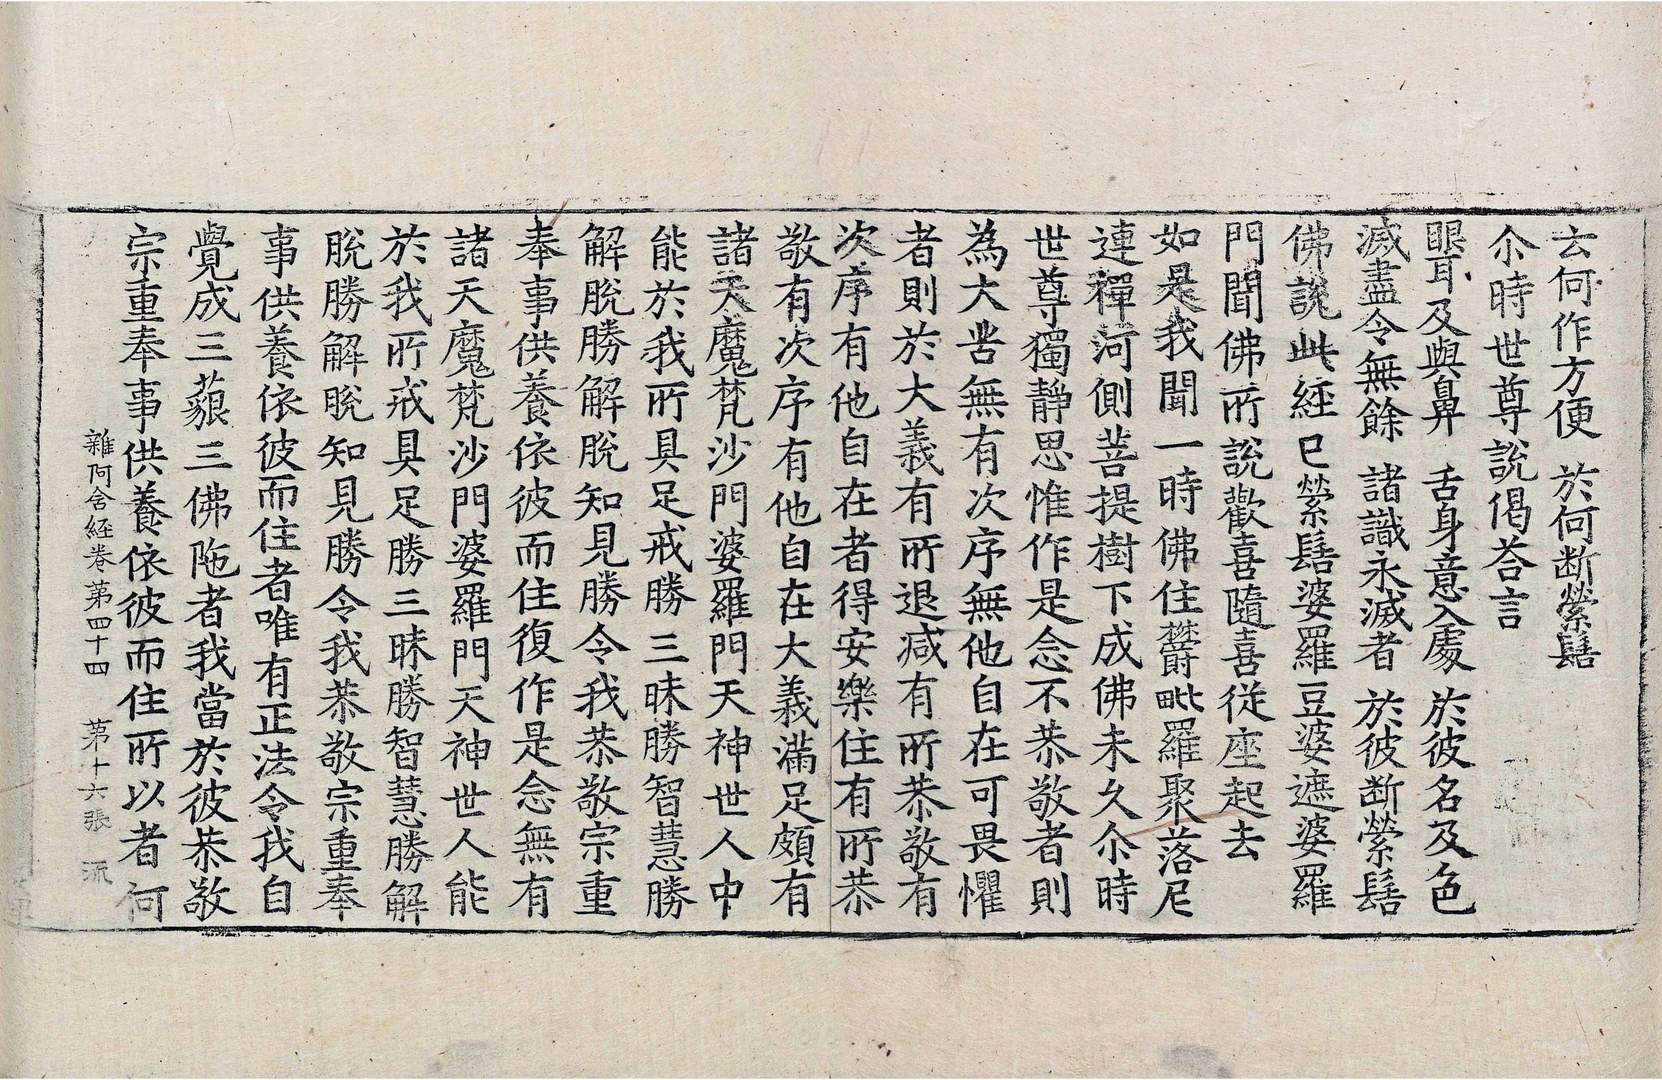 云何作方便　於何断縈髻
尒時世尊說偈荅言
眼耳及與鼻　舌身意入處　於彼名及色
滅盡令無餘　諸識永滅者　於彼断縈髻
佛說此經已縈髻婆羅豆婆遮婆羅
門聞佛所說歡喜隨喜従座起去
如是我聞一時佛住欝毗羅聚落尼
連禪河側菩提樹下成佛未久尒時
世尊獨靜思惟作是念不恭敬者則
為大苦無有次序無他自在可畏懼
者則於大義有所退减有所恭敬有
次序有他自在者得安樂住有所恭
敬有次序有他自在大義滿足頗有
諸天魔梵沙門婆羅門天神世人中
能於我所具足戒勝三昧勝智慧勝
解脫勝解脫知見勝令我恭敬宗重
奉事供養依彼而住復作是念無有
諸天魔梵沙門婆羅門天神世人能
於我所戒具足勝三昧勝智慧勝解
脫勝解脫知見勝令我恭敬宗重奉
事供養依彼而住者唯有正法令我自
覺成三藐三佛陁者我當於彼恭敬
宗重奉事供養依彼而住所以者何
雜阿含経卷第四十四　第十六張　流